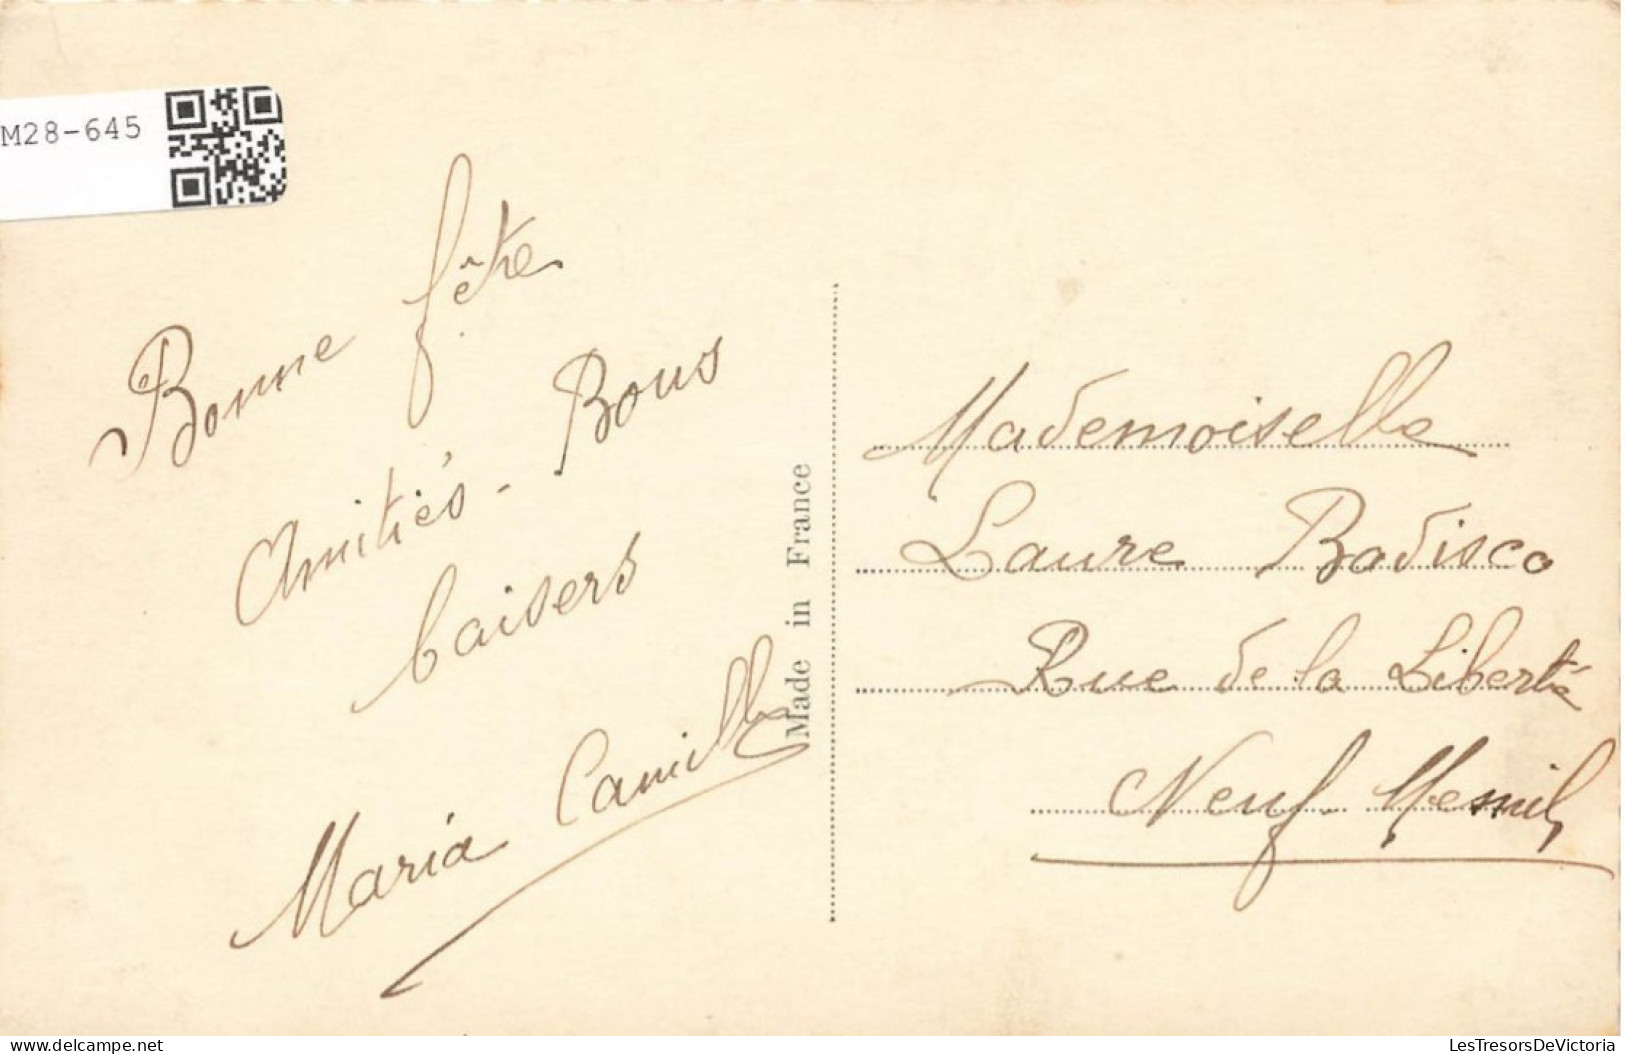 M28-645
Bonne fête
Amitiés - Bons
baisers
Maria Camille
Made in France
Mademoiselle
Laure Badisco
Rue de la Liberté
Neuf-Mesnil
Delcampe.net
LesTresorsDeVictoria